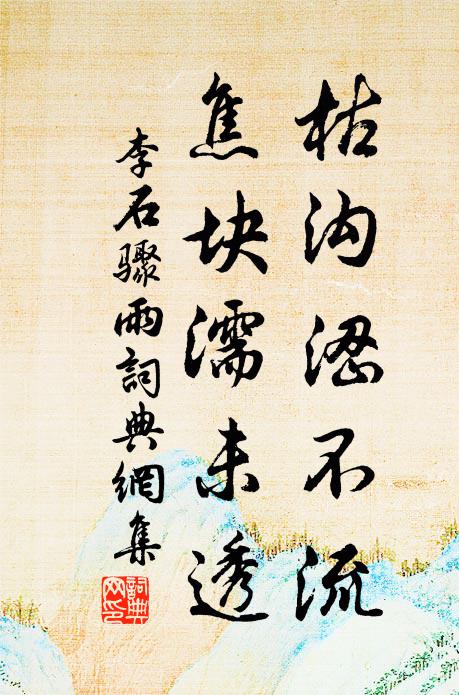 枯沟涩不流
焦块濡未透
李石骤雨詞典網集
詞典